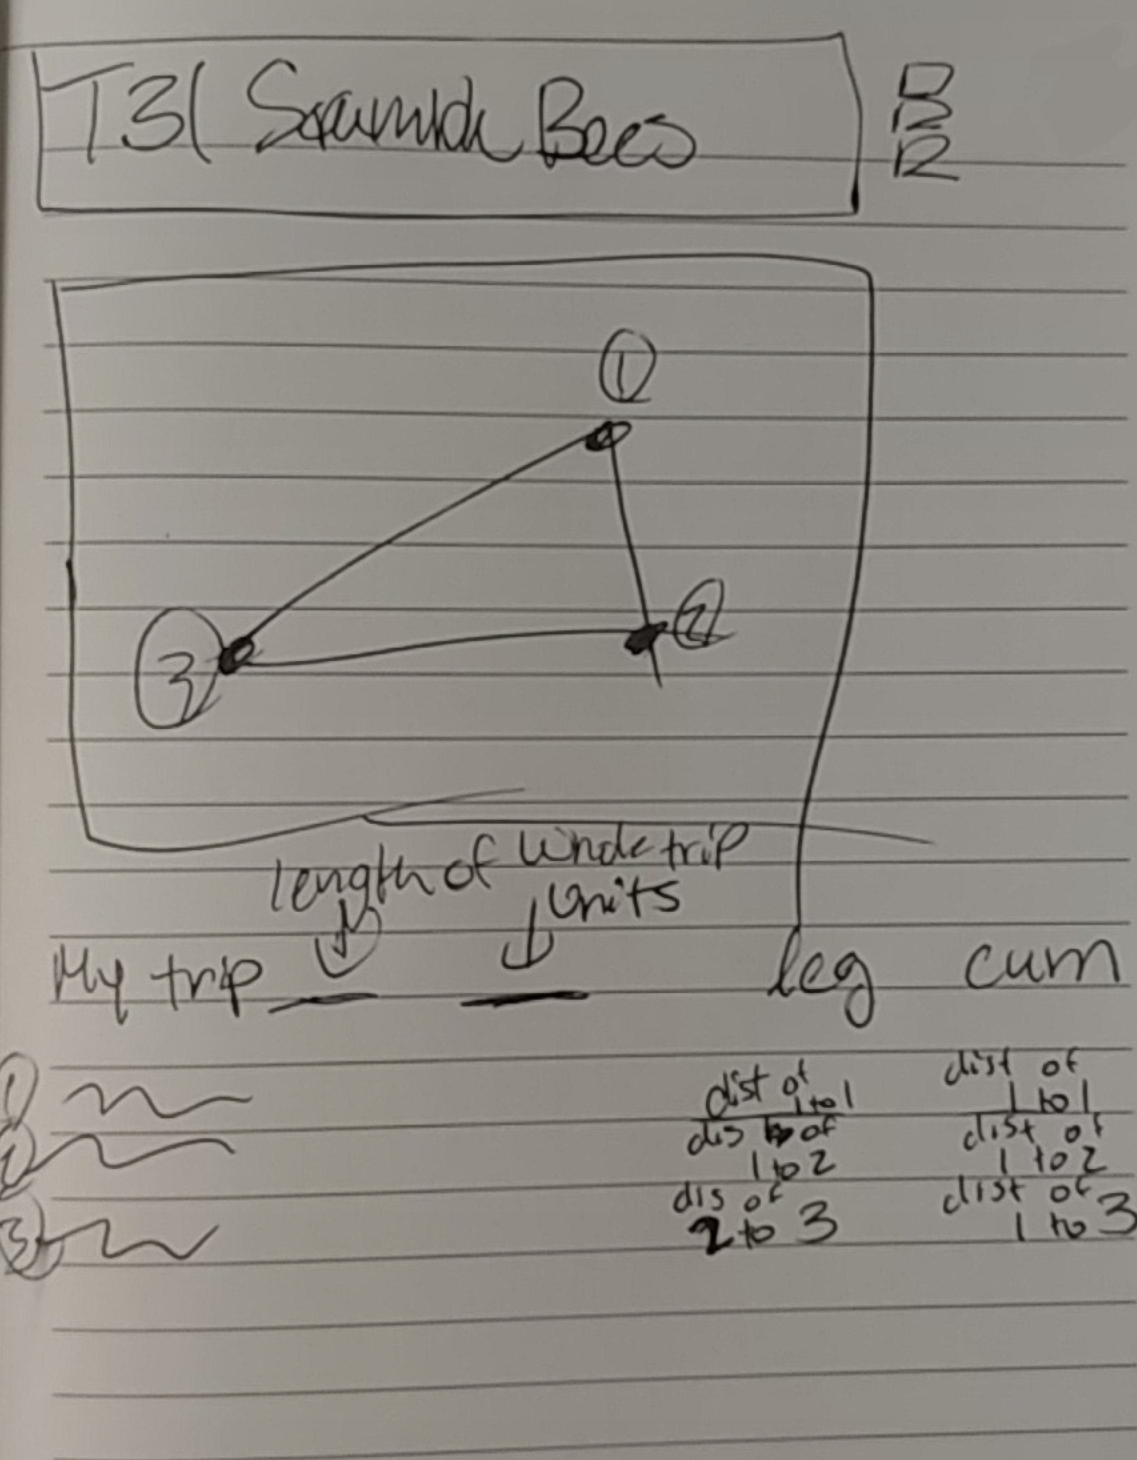 T31 Bees
1
2
3
length of whole trip
units
My trip leg cum
1 dist of 1 to 1 dist of 1 to 1
2 dis of 1 to 2 dist of 1 to 2
3 dis of 2 to 3 dist of 1 to 3